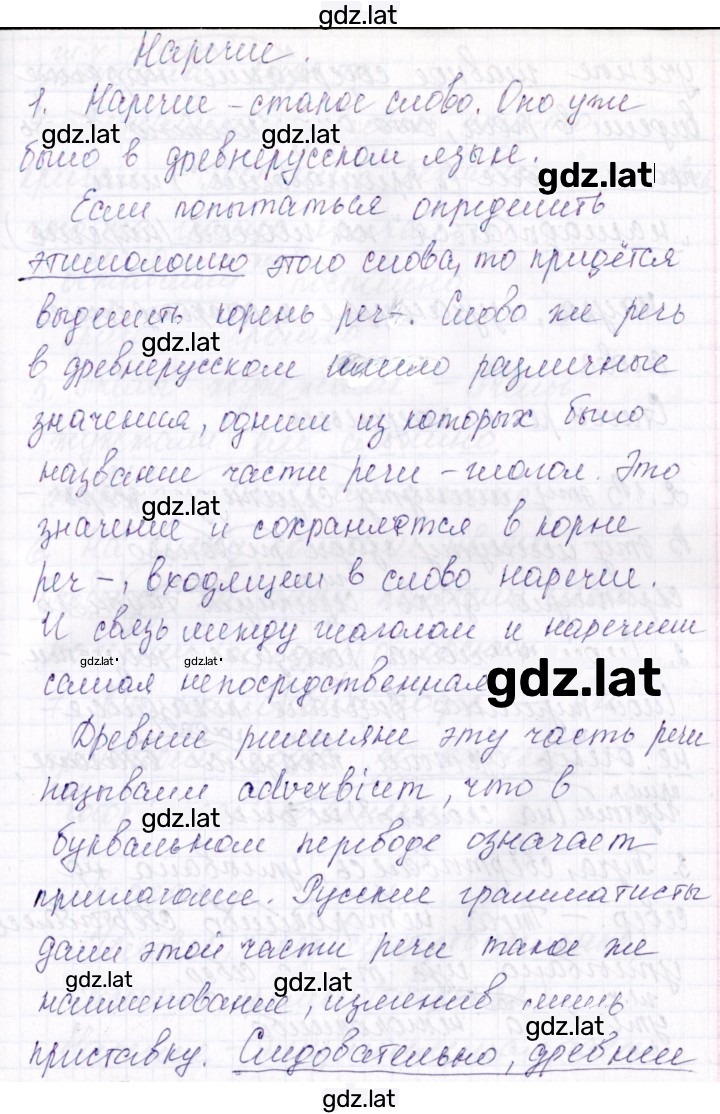 gdz.lat
Наречие.
1. Наречие – старое слово. Оно уже
gdz.lat gdz.lat
было в древнерусском языке.
gdz.lat
Если попытаться определить
этимологию этого слова, то придётся
выделить корень реч-. Слово же речь
gdz.lat
в древнерусском имело различные
значения, одним из которых было
название части речи – глагол. Это
gdz.lat
значение и сохраняется в корне
реч-, входящем в слово наречие.
И связь между глаголом и наречием
gdz.lat gdz.lat
самая непосредственная
gdz.lat
Древние римляне эту часть речи
называли adverbium, что в
gdz.lat
буквальном переводе означает
приглаголие. Русские грамматисты
дали этой части речи такое же
gdz.lat gdz.lat
наименование, изменив лишь
gdz.lat
приставку. Следовательно, древние
gdz.lat